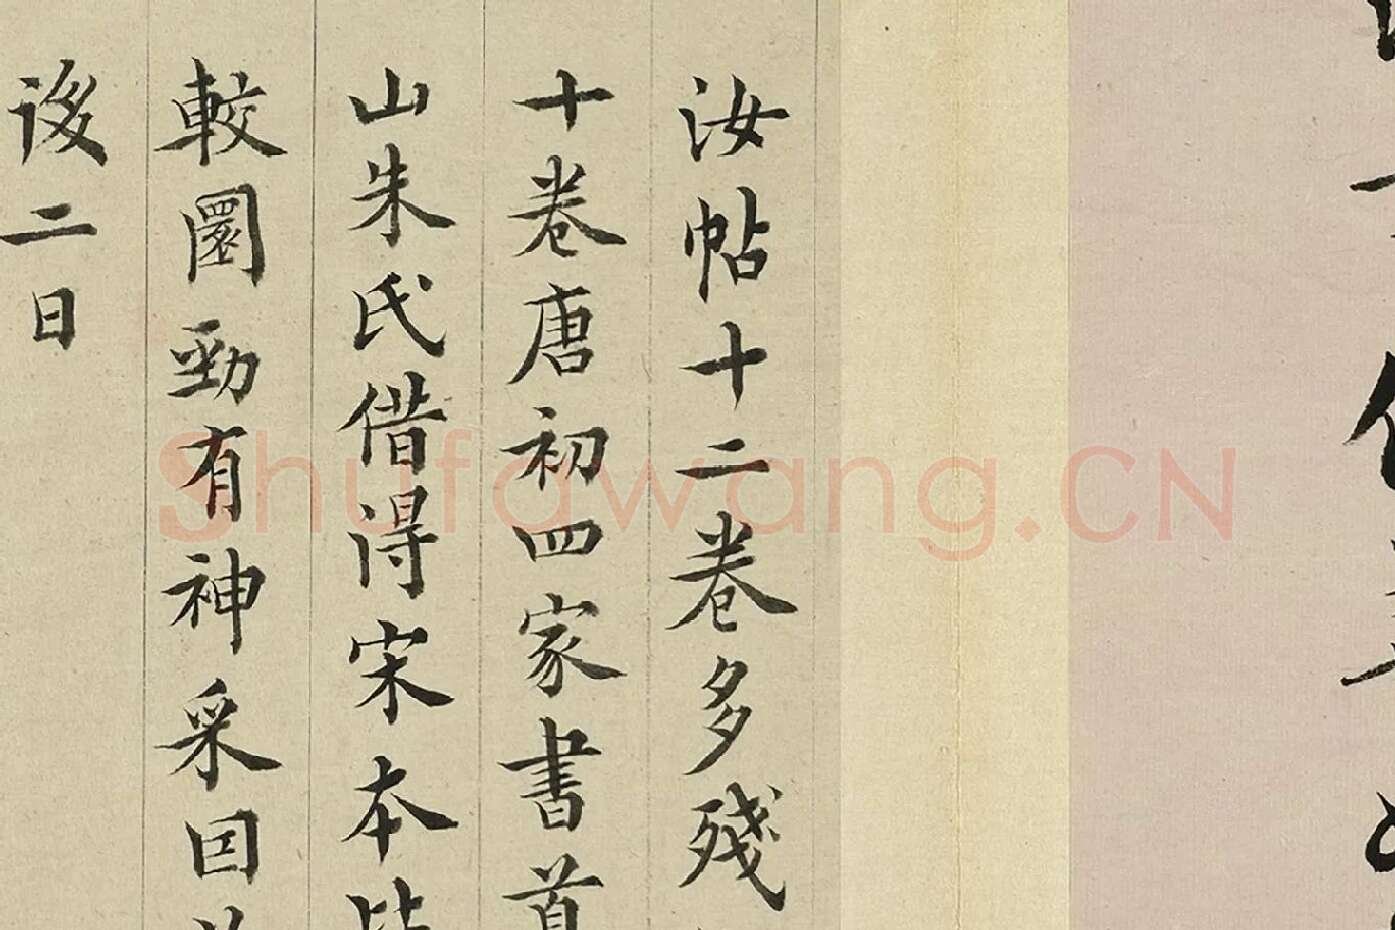 汝帖十二卷多殘
十卷唐初四家書首
山朱氏借得宋本
較圜勁有神采因
後二日
Shufawang.CN